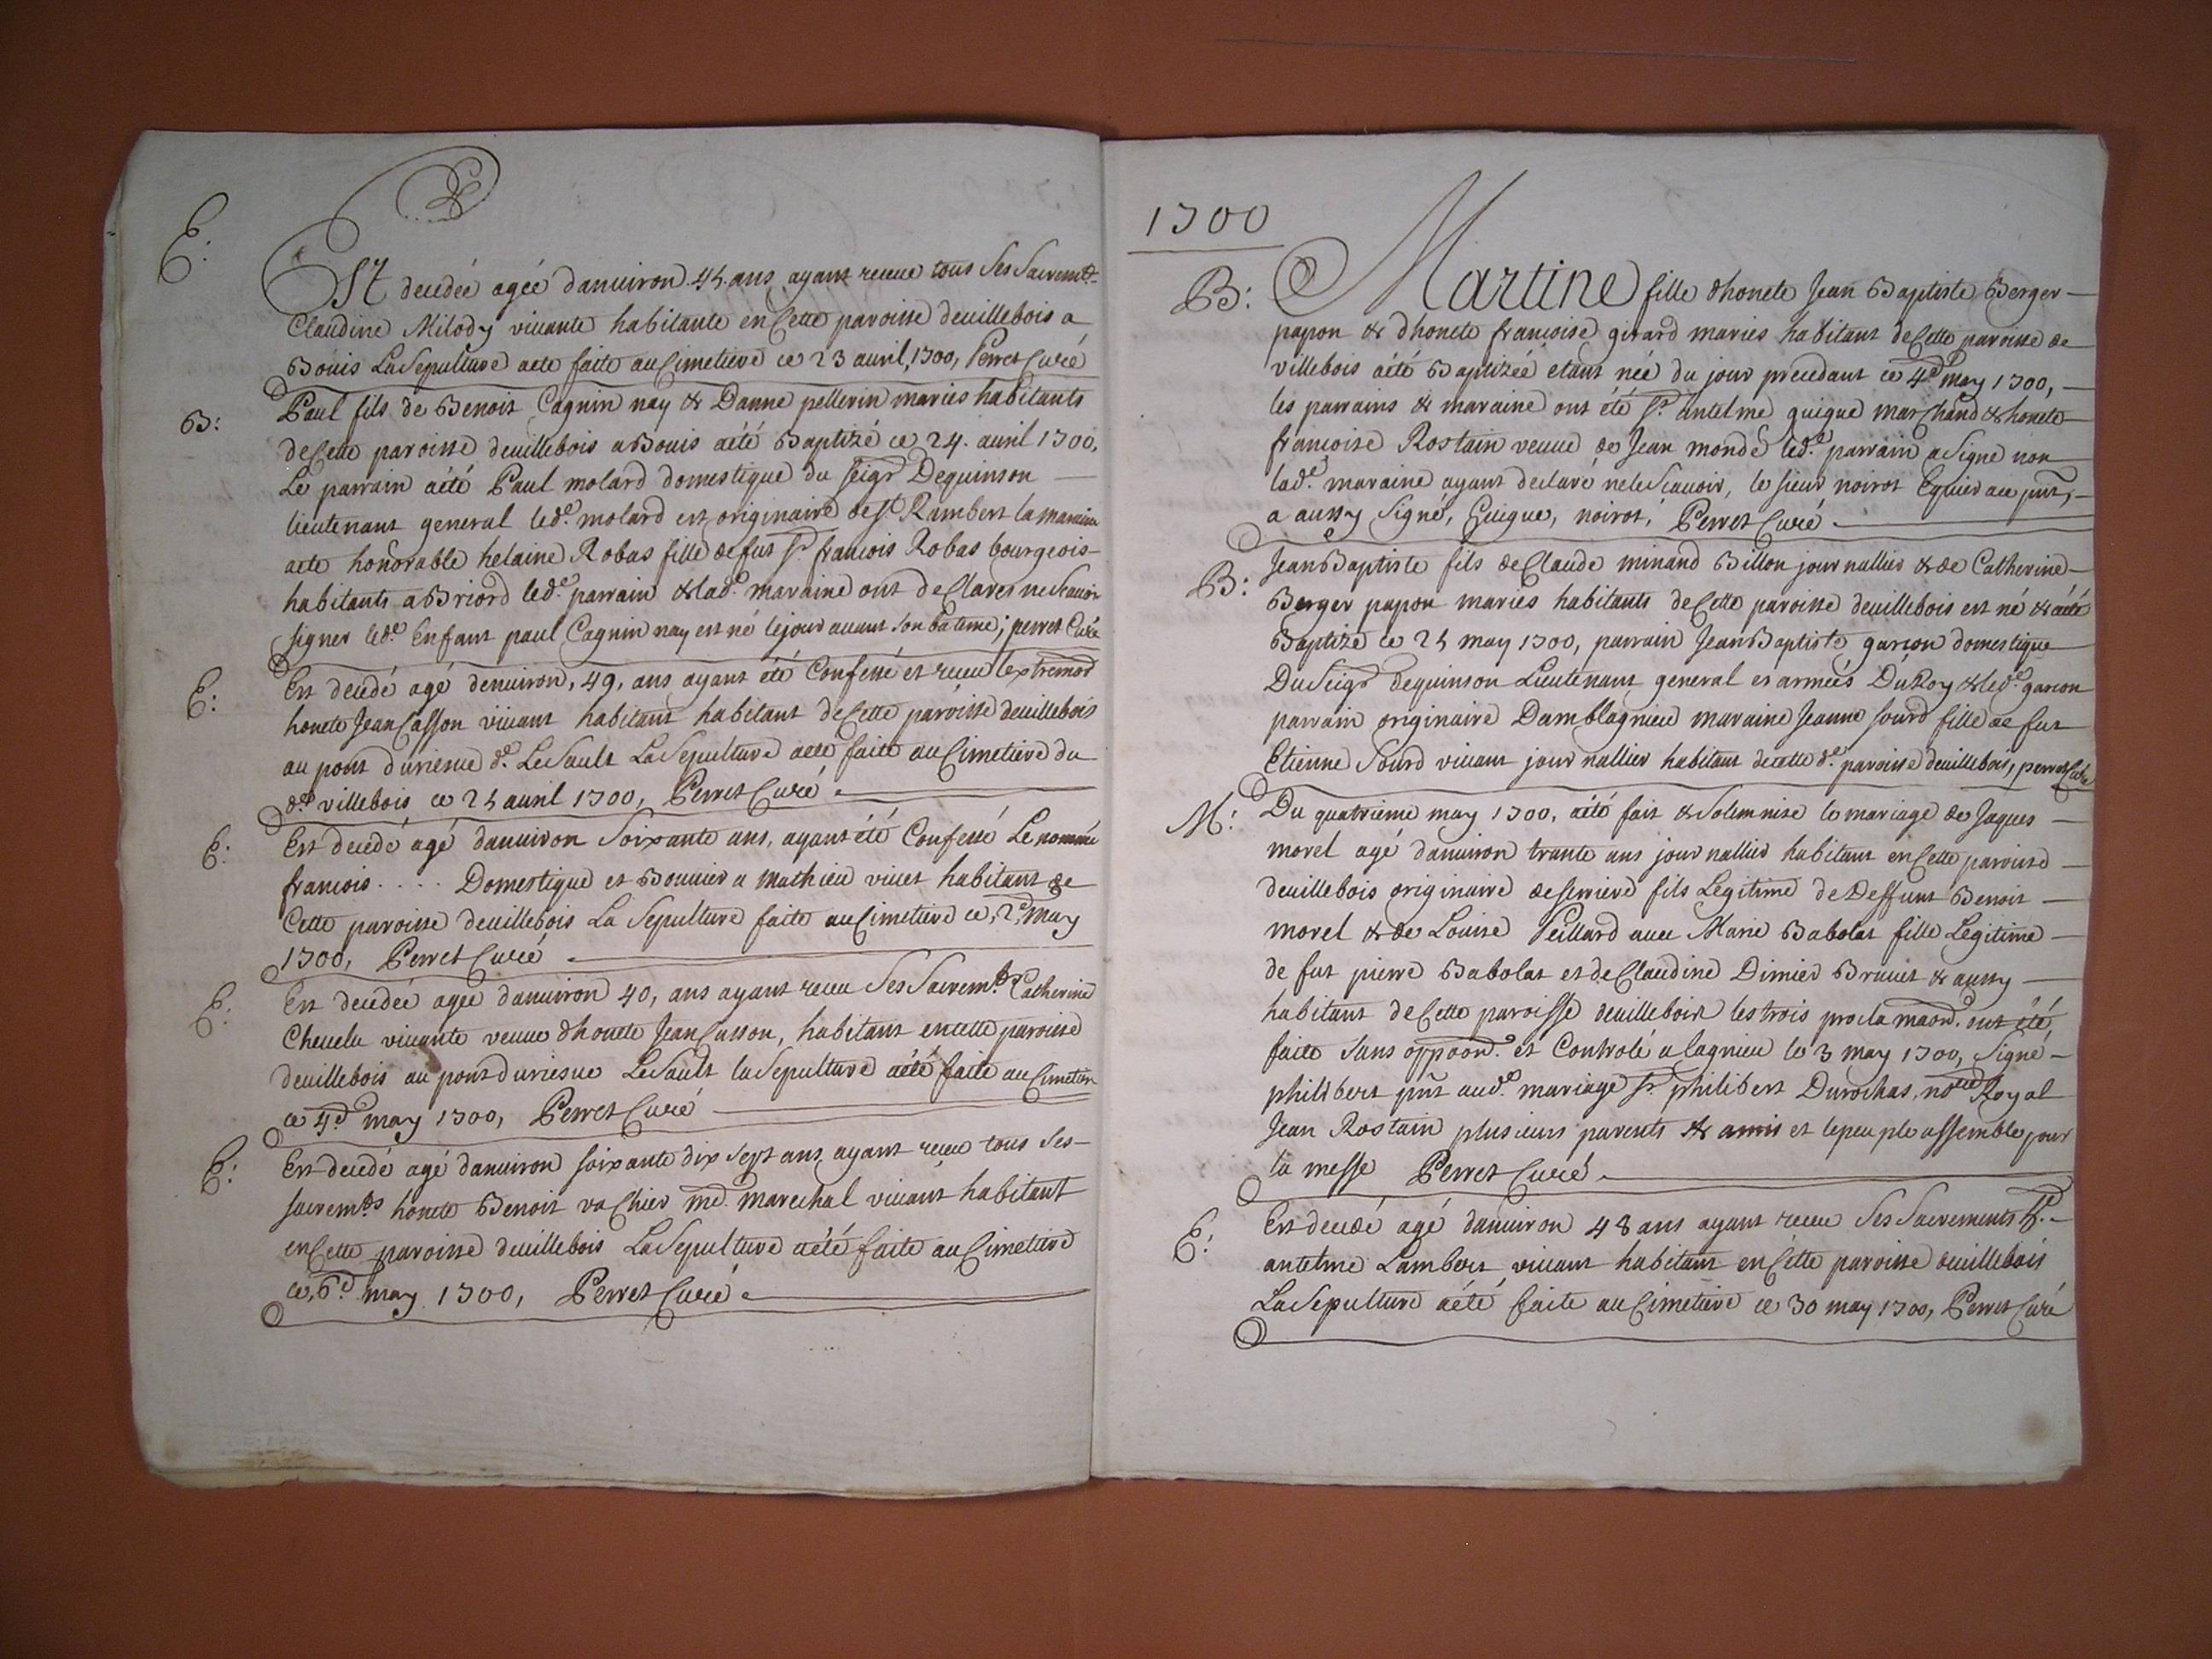 E.
Est decedée agée danuiron 45. ans ayant receue tous ses sacremts
Claudine Milody viuante habitante en Cette paroisse deuillebois a
Bouis La Sepulture aete faite au Cimetiere ce 23 auril, 1700, Perret Curé
B:
Paul fils de Benoit Cagnin nay & Danne pellerin mariés habitants
de Cette paroisse deuillebois a Bouis aété Baptizé ce 24. auril 1700,
Le parrain aété Paul molard domestique du seigr Dequinson
lieutenant general led.e molard est originaire de st Rambert la maraine
aete honorable helaine Robas fille de fut sr. francois Robas bourgeois
habitants a Briord led.e parrain & lad.e maraine ont de Clarés ne scauoir
signer led.e Enfant paul Cagnin nay est né le jour auant son bateme; perret Curé
E:
Est decedé agé denuiron, 49, ans ayant été Confessé et receu lextremon
honete Jean Casson viuant habitant habitant de Cette paroisse deuillebois
au pont duriesue d.e Le Sault La Sepulture aete faite au Cimetiere du
d.e villebois ce 25 auril 1700, Perret Curé
E:
Est decedé agé danuiron soixante ans, ayant été Confessé Le nommé
francois . . . . Domestique et Bouuier a Mathieu viuet habitant de
Cette paroisse deuillebois La Sepulture faite au Cimetiere ce, 2.e May
1700, Perret Curé
E:
Est decedée agée danuiron 40, ans ayant receu Ses Sacremts Catherine
Cheuelu viuante veuue dhonete Jean Casson, habitant en cette paroisse
deuillebois au pont duriesue Le Sault la Sepulture aété faite au Cimetiere
ce 4.e may 1700, Perret Curé
E:
Est decedé agé danuiron soixante dix sept ans ayant receu tous Ses
sacremts honete Benoit vachier md. marechal viuant habitant
en Cette paroisse deuillebois La Sepulture aété faite au Cimetiere
ce, 6.e may 1700, Perret Curé
1700
B:
Martine fille dhonete Jean Baptiste Berger
papon & dhonete francoise girard mariés habitant de Cette paroisse de
villebois aété Baptizéé etant néé du jour precedant ce 4.e may 1700,
les parrains & maraine ont été sr. antelme guigue marchand & honete
francoise Rostain veuue de Jean monde led.e parrain a Signé non
lad.e maraine ayant declaré ne le Scauoir, le sieur noirot Equier aee pnt,
a aussy Signé, Guigue, noirot, Perret Curé
B:
Jean Baptiste fils de Claude minand Billon journallier & de Catherine
Berger papon mariés habitants de Cette paroisse deuillebois est né & aété
Baptizé ce 25 may 1700, parrain Jean Baptiste garcon domestique
Du Seigr dequinson Lieutenant general es armées Du Roy & led.e garcon
parrain originaire Damblagnieu maraine Jeanne sourd fille de fut
Etienne Sourd viuant journallier habitant decette d.e paroisse deuillebois, perret Curé
M:
Du quatrieme may 1700, aété fait & Solemnise le mariage de Jaques
morel agé danuiron trante ans journallier habitant en Cette paroisse
deuillebois originaire de serriere fils Legitime de Deffunt Benoit
morel & de Louise Peillard auec Marie Babolat fille Legitime
de fut pierre Babolat et de Claudine Dimier Bruiet & aussy
habitant de Cette paroisse deuillebois les trois proclamaon. ont été,
faite Sans oppoon. et Controlé a lagnieu le 3 may 1700, Signé
philibert pnt aud.e mariage sr. philibert Durochas, nore Royal
Jean Rostain plusieurs parents & amis et lepeuple assemble pour
la messe Perret Curé
E:
Est decedé agé danuiron 48 ans ayant receu Ses Sacrements sr.
antelme Lambert viuant habitant en Cette paroisse deuillebois
La Sepulture aété faite au Cimetiere ce 30 may 1700, Perret Curé